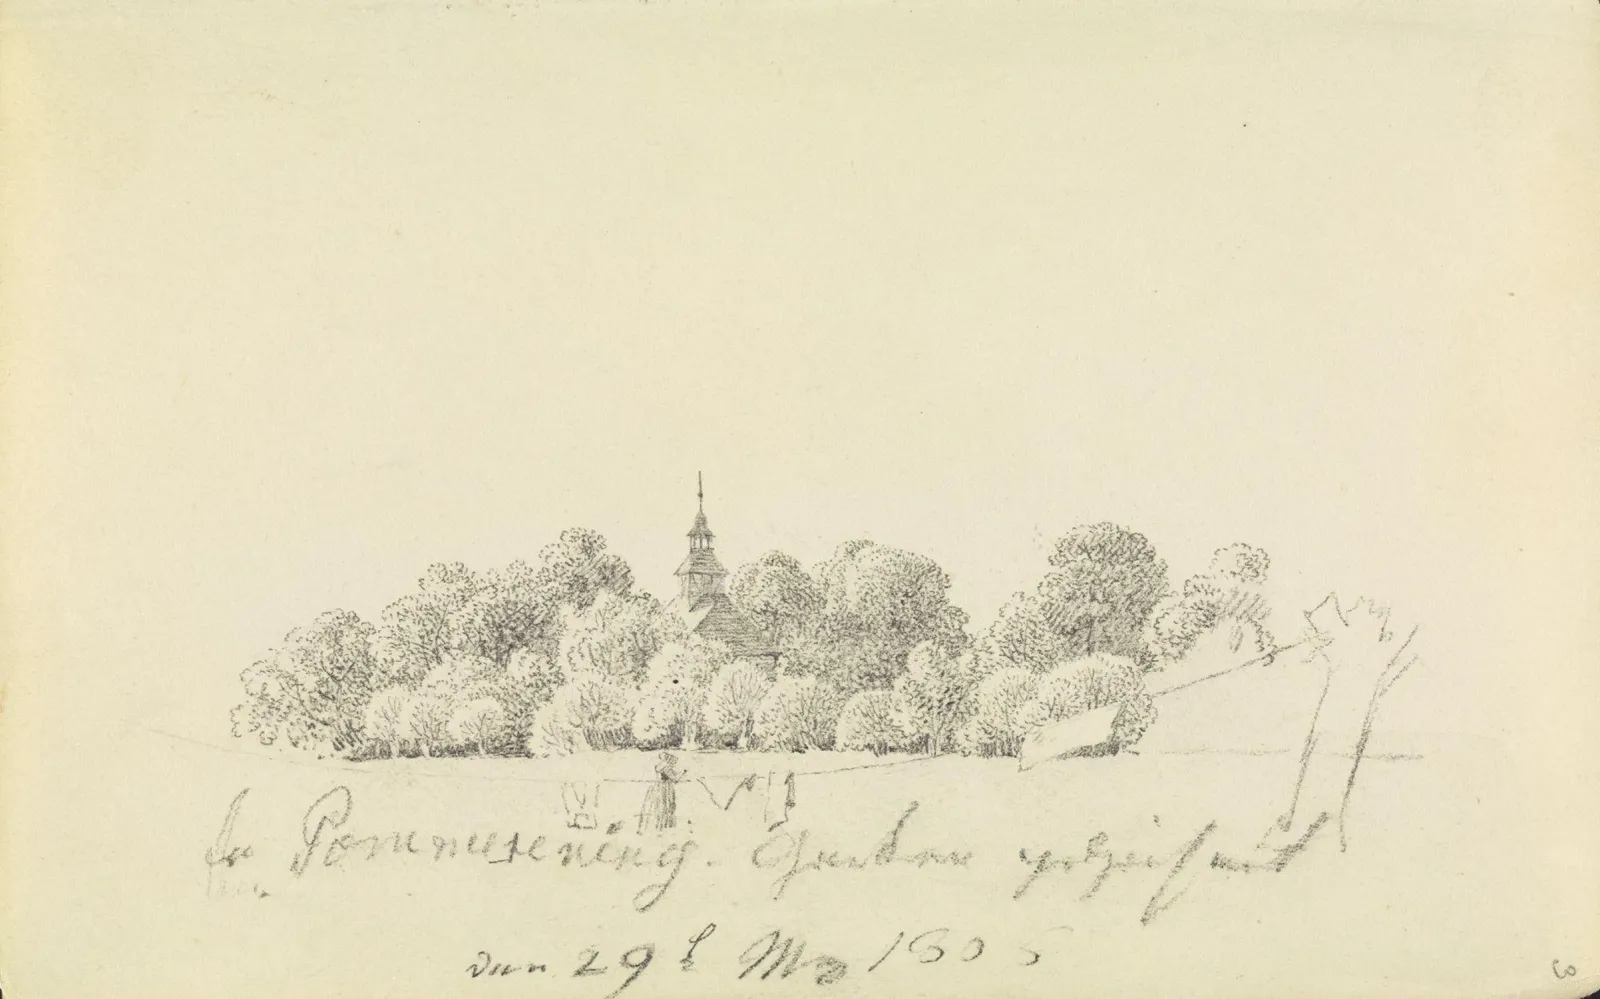 In Pommerening. Garten gezeichnet
den 29t May 1805
3